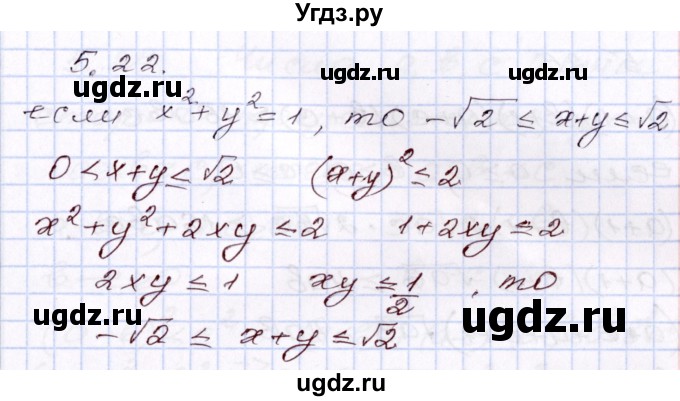 Угдз.ру
5.22.
ugdz.ru ugdz.ru ugdz.ru
если x²+y²=1, то -√2 ≤ x+y ≤ √2
0 < x+y ≤ √2 (x+y)² ≤ 2
x²+y²+2xy ≤ 2 1+2xy ≤ 2
2xy ≤ 1 xy ≤ 1/2, то
ugdz.ru ugdz.ru ugdz.ru
-√2 ≤ x+y ≤ √2
ugdz.ru